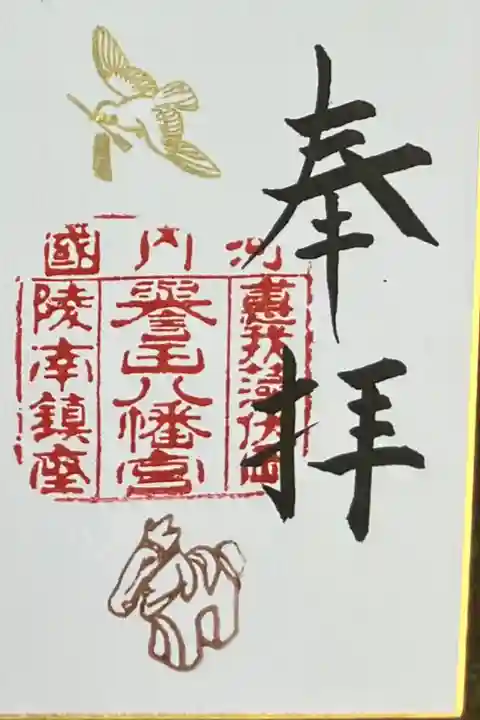 奉拝
河内國
惠我藻伏岡
譽田八幡宮
陵南鎮座